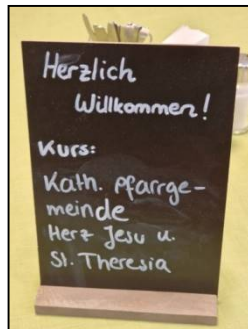 Herzlich
Willkommen!
Kurs:
Kath. Pfarrge-
meinde
Herz Jesu u.
St. Theresia